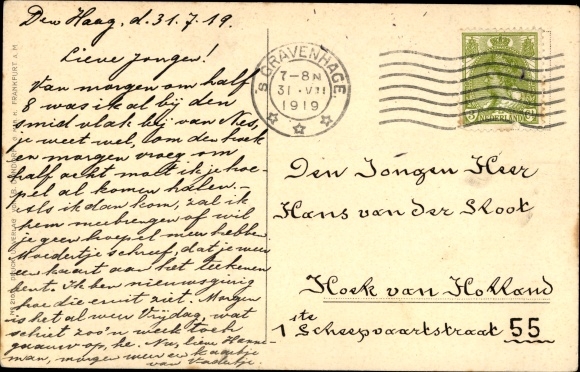 Den Haag, d. 31.7.19.
Lieve jongen!
Van morgen om half
8 was ik al bij den
smid vlak bij van Nes,
je weet wel, om den hoek
en morgen vroeg om
half acht moet ik je hoe-
pel al komen halen.
Als ik dan kom, zal ik
hem meebrengen of wil
je geen hoepel meer hebben?
Moedertje schreef, dat je weer
een kaart aan het teekenen
bent. Ik ben nieuwsgierig
hoe die eruit ziet. Morgen
is het al weer Vrijdag, wat
schiet zoo'n week toch
gauw op, hè. Nu, lieve Hanne-
man, morgen weer een kaartje
van Vadertje.
'S GRAVENHAGE
7-8N
31 VII
1919
NEDERLAND
Den Jongen Heer
Hans van der Sloot
Hoek van Holland
1ste Scheepvaartstraat 55